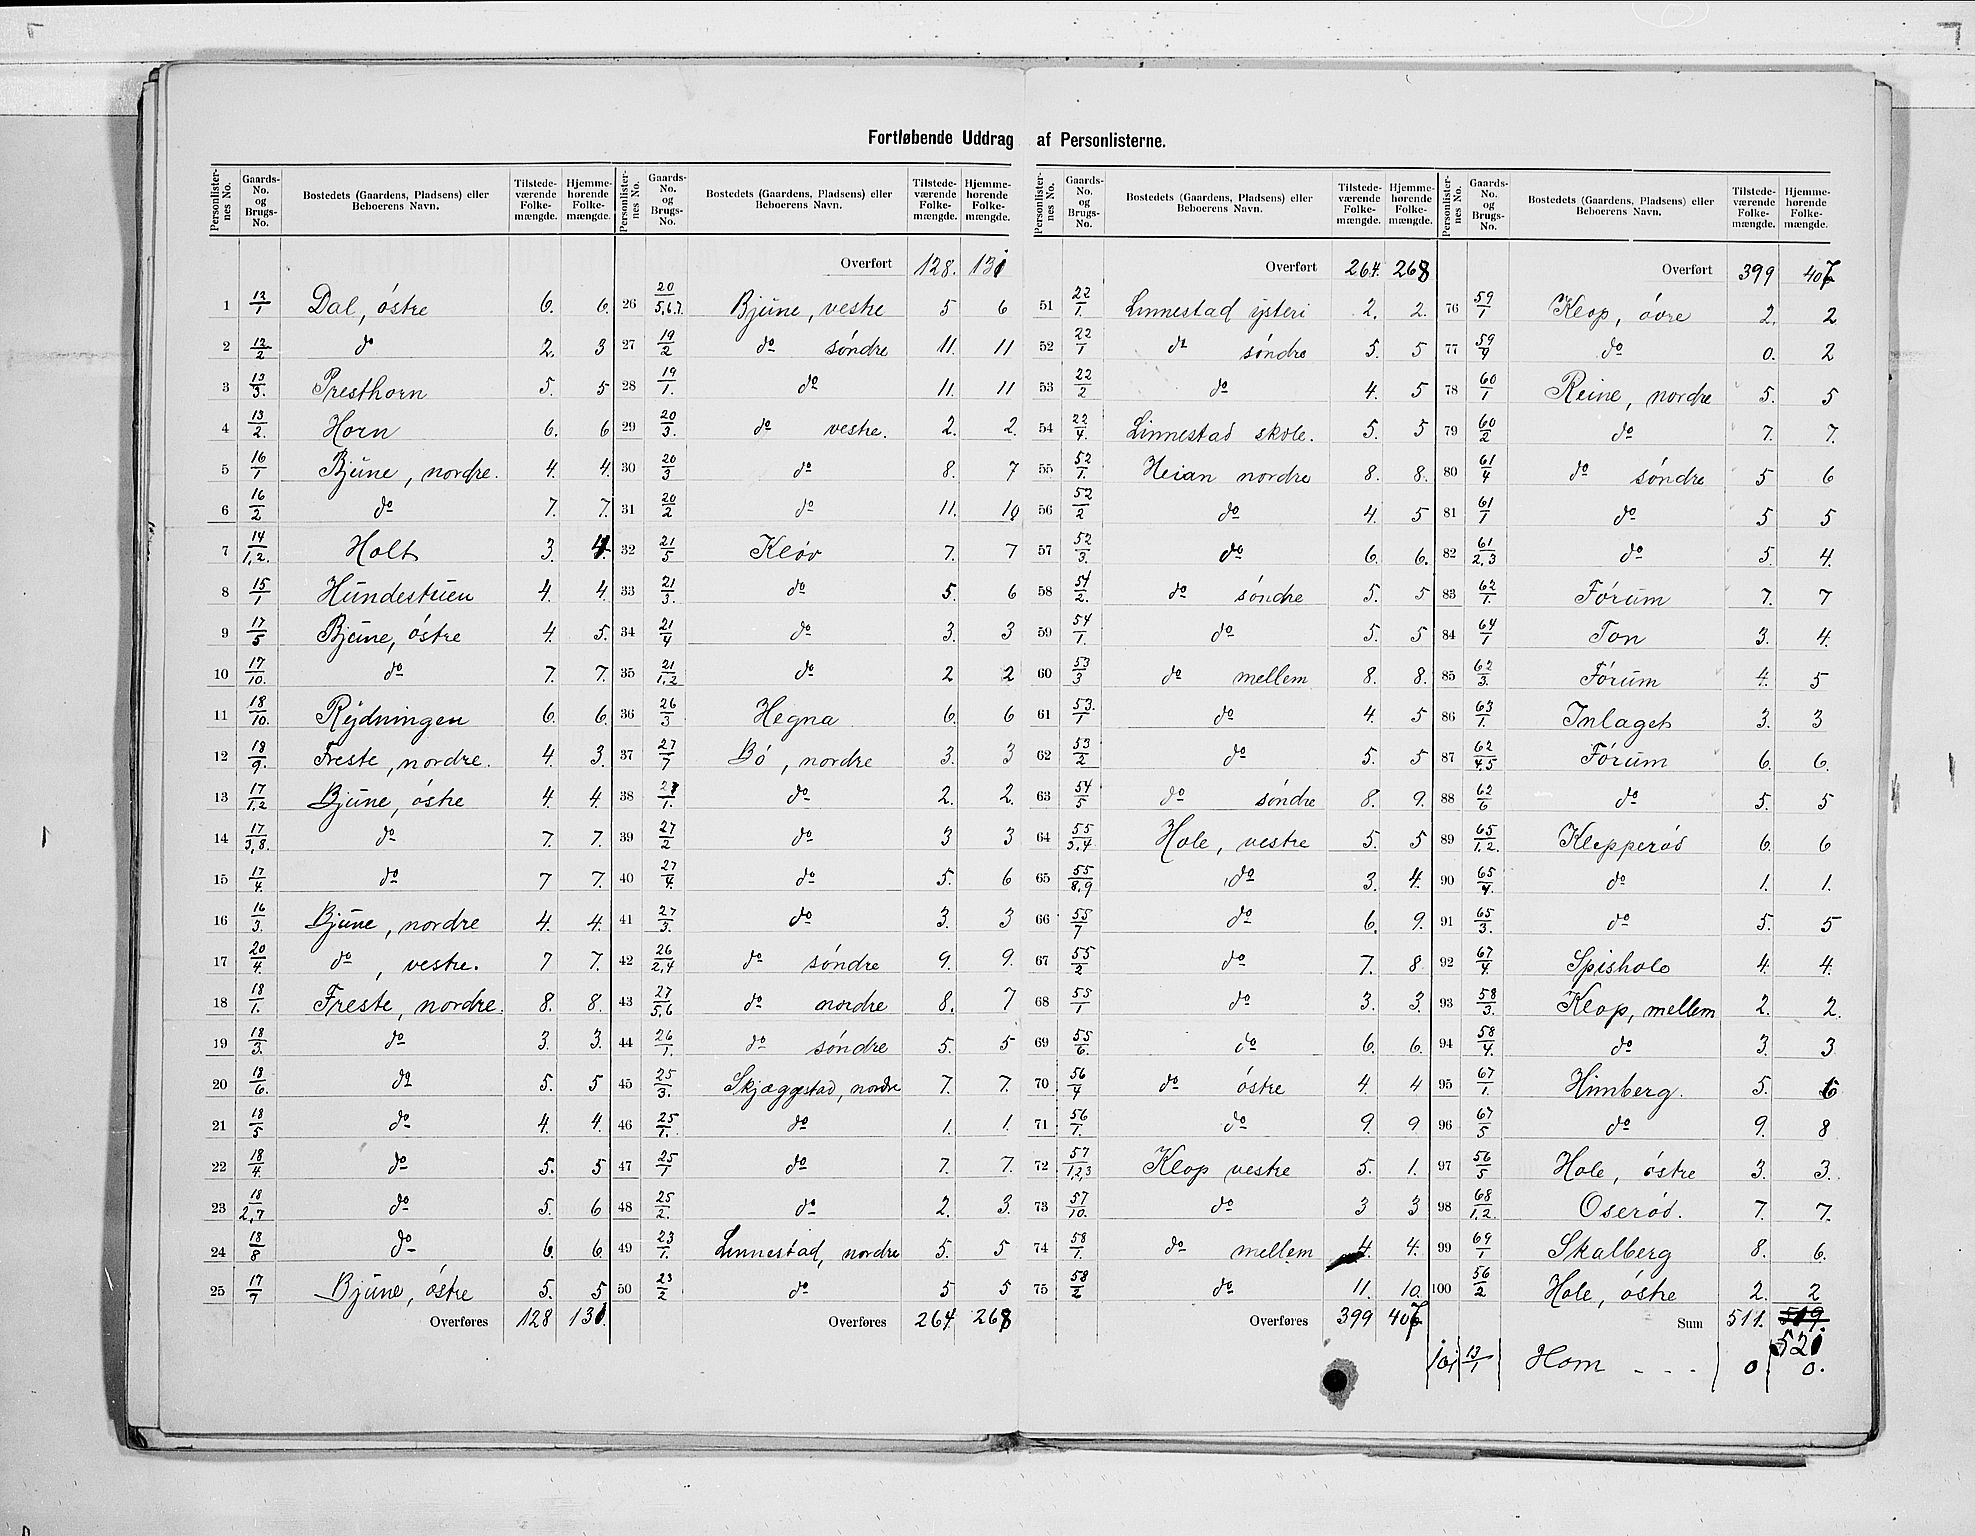 Fortløbende Uddrag af Personlisterne.
Personlisternes No. | Gaards-No. og Brugs-No. | Bostedets (Gaardens, Pladsens) eller Beboerens Navn. | Tilstedeværende Folkemængde. | Hjemmehørende Folkemængde.
1 12/1 Dal, östre 6. 6.
2 12/2 do 2. 3
3 13/3. Presthorn 5. 5
4 13/2. Horn 6. 6
5 16/1 Bjune, nordre. 4. 4.
6 16/2 do 7. 7.
7 14/1,2. Holt 3. 4.
8 15/1 Hundestuen 4. 4.
9 17/5 Bjune, östre 4. 5.
10 17/10. do 7. 7.
11 18/10. Rydningen 6. 6.
12 18/9. Freste, nordre. 4. 3.
13 17/1,2 Bjune, östre 4. 4.
14 17/3,8. do 7. 7.
15 17/4. do 7 7.
16 16/3. Bjune, nordre 4. 4.
17 20/4. do, vestre. 7 7.
18 18/1. Freste, nordre. 8. 8.
19 18/3. do 3. 3.
20 18/6. do 5. 5
21 18/5 do 4. 4.
22 18/4. do 5. 5
23 18/2,7 do 5. 6
24 18/8 do 6. 6
25 17/7 Bjune, östre 5. 5
Overføres 128 131.
Overført 128. 131
26 20/5,6,7. Bjune, vestre 5 6
27 19/2 do söndre 11. 11
28 19/1. do 11. 11
29 20/3. do vestre. 2. 2.
30 20/3 do 8. 7
31 20/2 do 11. 10
32 21/5 Klöv 7. 7
33 21/3. do 5. 6
34 21/4 do 3. 3
35 21/1,2 do 2 2
36 26/3 Hegna 6. 6
37 27/7 Bö, nordre 3. 3
38 27/1. do 2. 2.
39 27/2 do 3 3
40 27/4. do 5. 6
41 27/3. do 3. 3
42 26/2,4 do söndre 9. 9.
43 27/5,6 do nordre 8. 7
44 26/1. do söndre 5. 5
45 25/3. Skjæggestad, nordre 7. 7.
46 25/1. do 1. 1.
47 25/1 do 7. 7.
48 25/2. do 2. 3.
49 23/1. Linnestad, nordre 5. 5
50 23/2 do 5 5
Overføres 264. 268
Overført 264. 268
51 22/1. Linnestad ysteri 2. 2.
52 22/1 do söndre 5. 5
53 22/2 do 4. 5
54 22/4. Linnestad skole. 5. 5
55 52/1. Heian nordre 8. 8.
56 52/2 do 4. 5
57 52/3. do 6. 6.
58 54/2. do söndre 5. 5
59 54/1. do 5. 5
60 53/3 do mellem 8. 8.
61 53/1 do 4. 5
62 53/2 do 5. 5
63 54/5 do söndre 8. 9.
64 55/3,4 Hole, vestre 5. 5
65 55/8,9 do 3. 4.
66 55/7 do 6. 9.
67 55/2 do 7. 8
68 55/1 do 3. 3.
69 55/6. do 6. 6.
70 56/4 do östre 4. 4
71 56/1. do 9. 9
72 57/1,2,3 Klop vestre 5. 1.
73 57/10. do 3 3
74 58/1. do mellem 4. 4.
75 58/2 do 11. 10.
Overføres 399 407
Overført 399 407
76 59/1 Klop, övre 2. 2
77 59/4 do 0. 2
78 60/1 Reine, nordre 5. 5
79 60/2 do 7. 7.
80 61/4 do söndre 5 6
81 61/1 do 5 5
82 61/2,3 do 5. 4.
83 62/1. Fórum 7. 7
84 64/1 Ton 3. 4.
85 62/3. Fórum 4. 5
86 63/1. Inlaget 3. 3
87 62/4,5 Fórum 6. 6.
88 62/6 do 5. 5
89 65/1,2. Klepperöd 6. 6
90 65/4. do 1. 1.
91 65/3. do 5. 5
92 67/4 Spishole 4. 4.
93 58/3. Klop, mellem 2. 2.
94 58/4. do 3. 3
95 67/1. Himberg. 5. 6
96 67/5 do 9. 8
97 56/5 Hole, östre 3. 3.
98 68/1,2. Oseröd. 7. 7.
99 69/1 Skalberg 8. 6.
100 56/2 Hole, östre 2. 2
Sum 511. 519.
521
101 13/1 Horn - - - 0. 0.